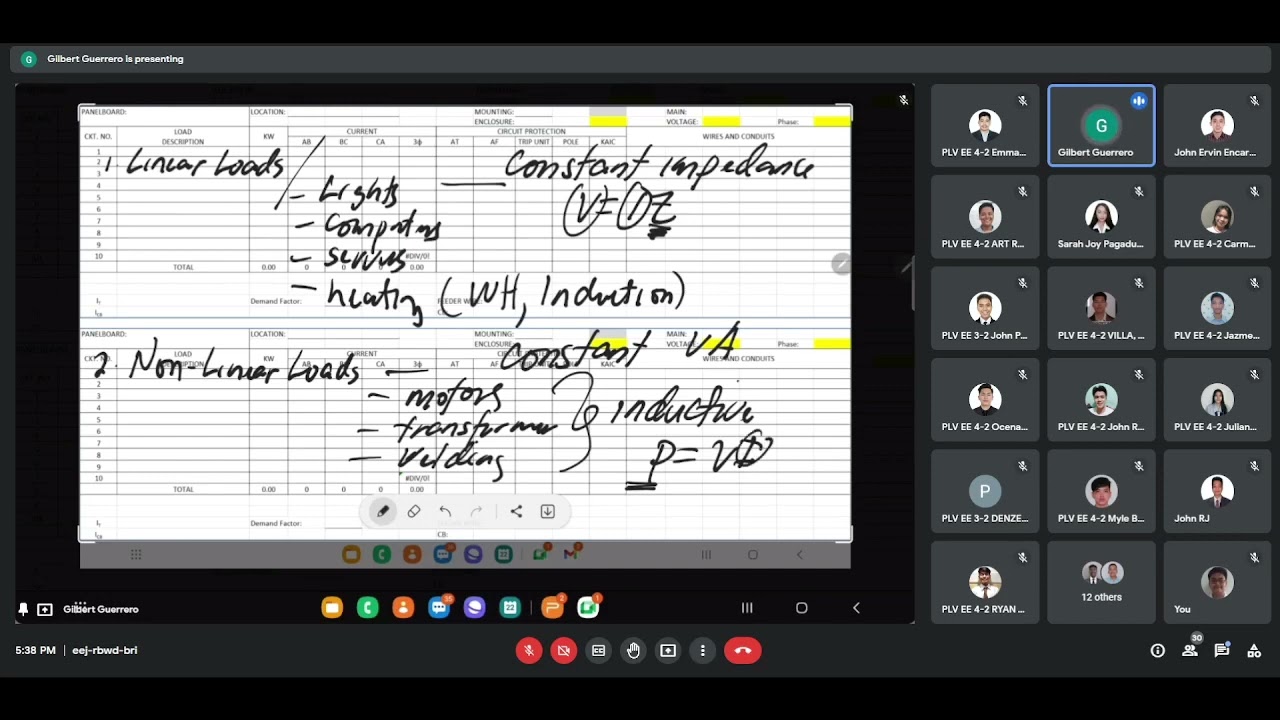 G Gilbert Guerrero is presenting
PANELBOARD: LOCATION: MOUNTING: MAIN:
ENCLOSURE: VOLTAGE: Phase:
CKT. NO. LOAD DESCRIPTION KW CURRENT CIRCUIT PROTECTION WIRES AND CONDUITS
AB BC CA 3ф AT AF TRIP UNIT POLE KAIC
1
2
3
4
5
6
7
8
9
10 #DIV/0!
TOTAL 0.00 0 0 0 0.00
Demand Factor:
1. Linear Loads
Constant impedance
- Lights
V = I Z
- Computers
- servers
- heating (WH, Induction)
PANELBOARD: LOCATION: MOUNTING: MAIN:
Phase:
LOAD DESCRIPTION KW CURRENT CA 3ф AT AF WIRES AND CONDUITS
2
3
4
5
6
7
8
9
10 #DIV/0!
TOTAL 0.00 0 0 0 0.00
Demand Factor:
CB:
2. Non-Linear Loads — constant VA
- motors
- transformer
- welding
inductive
P = VI
Gilbert Guerrero
5:38 PM | eej-rbwd-bri
PLV EE 4-2 Emma...
G
Gilbert Guerrero
John Ervin Encar...
PLV EE 4-2 ART R...
Sarah Joy Pagadu...
PLV EE 4-2 Carm...
PLV EE 3-2 John P...
PLV EE 4-2 VILLA, ...
PLV EE 4-2 Jazme...
PLV EE 4-2 Ocena...
PLV EE 4-2 John R...
PLV EE 4-2 Julian...
P
PLV EE 3-2 DENZE...
PLV EE 4-2 Myle B...
John RJ
PLV EE 4-2 RYAN ...
12 others
You
30